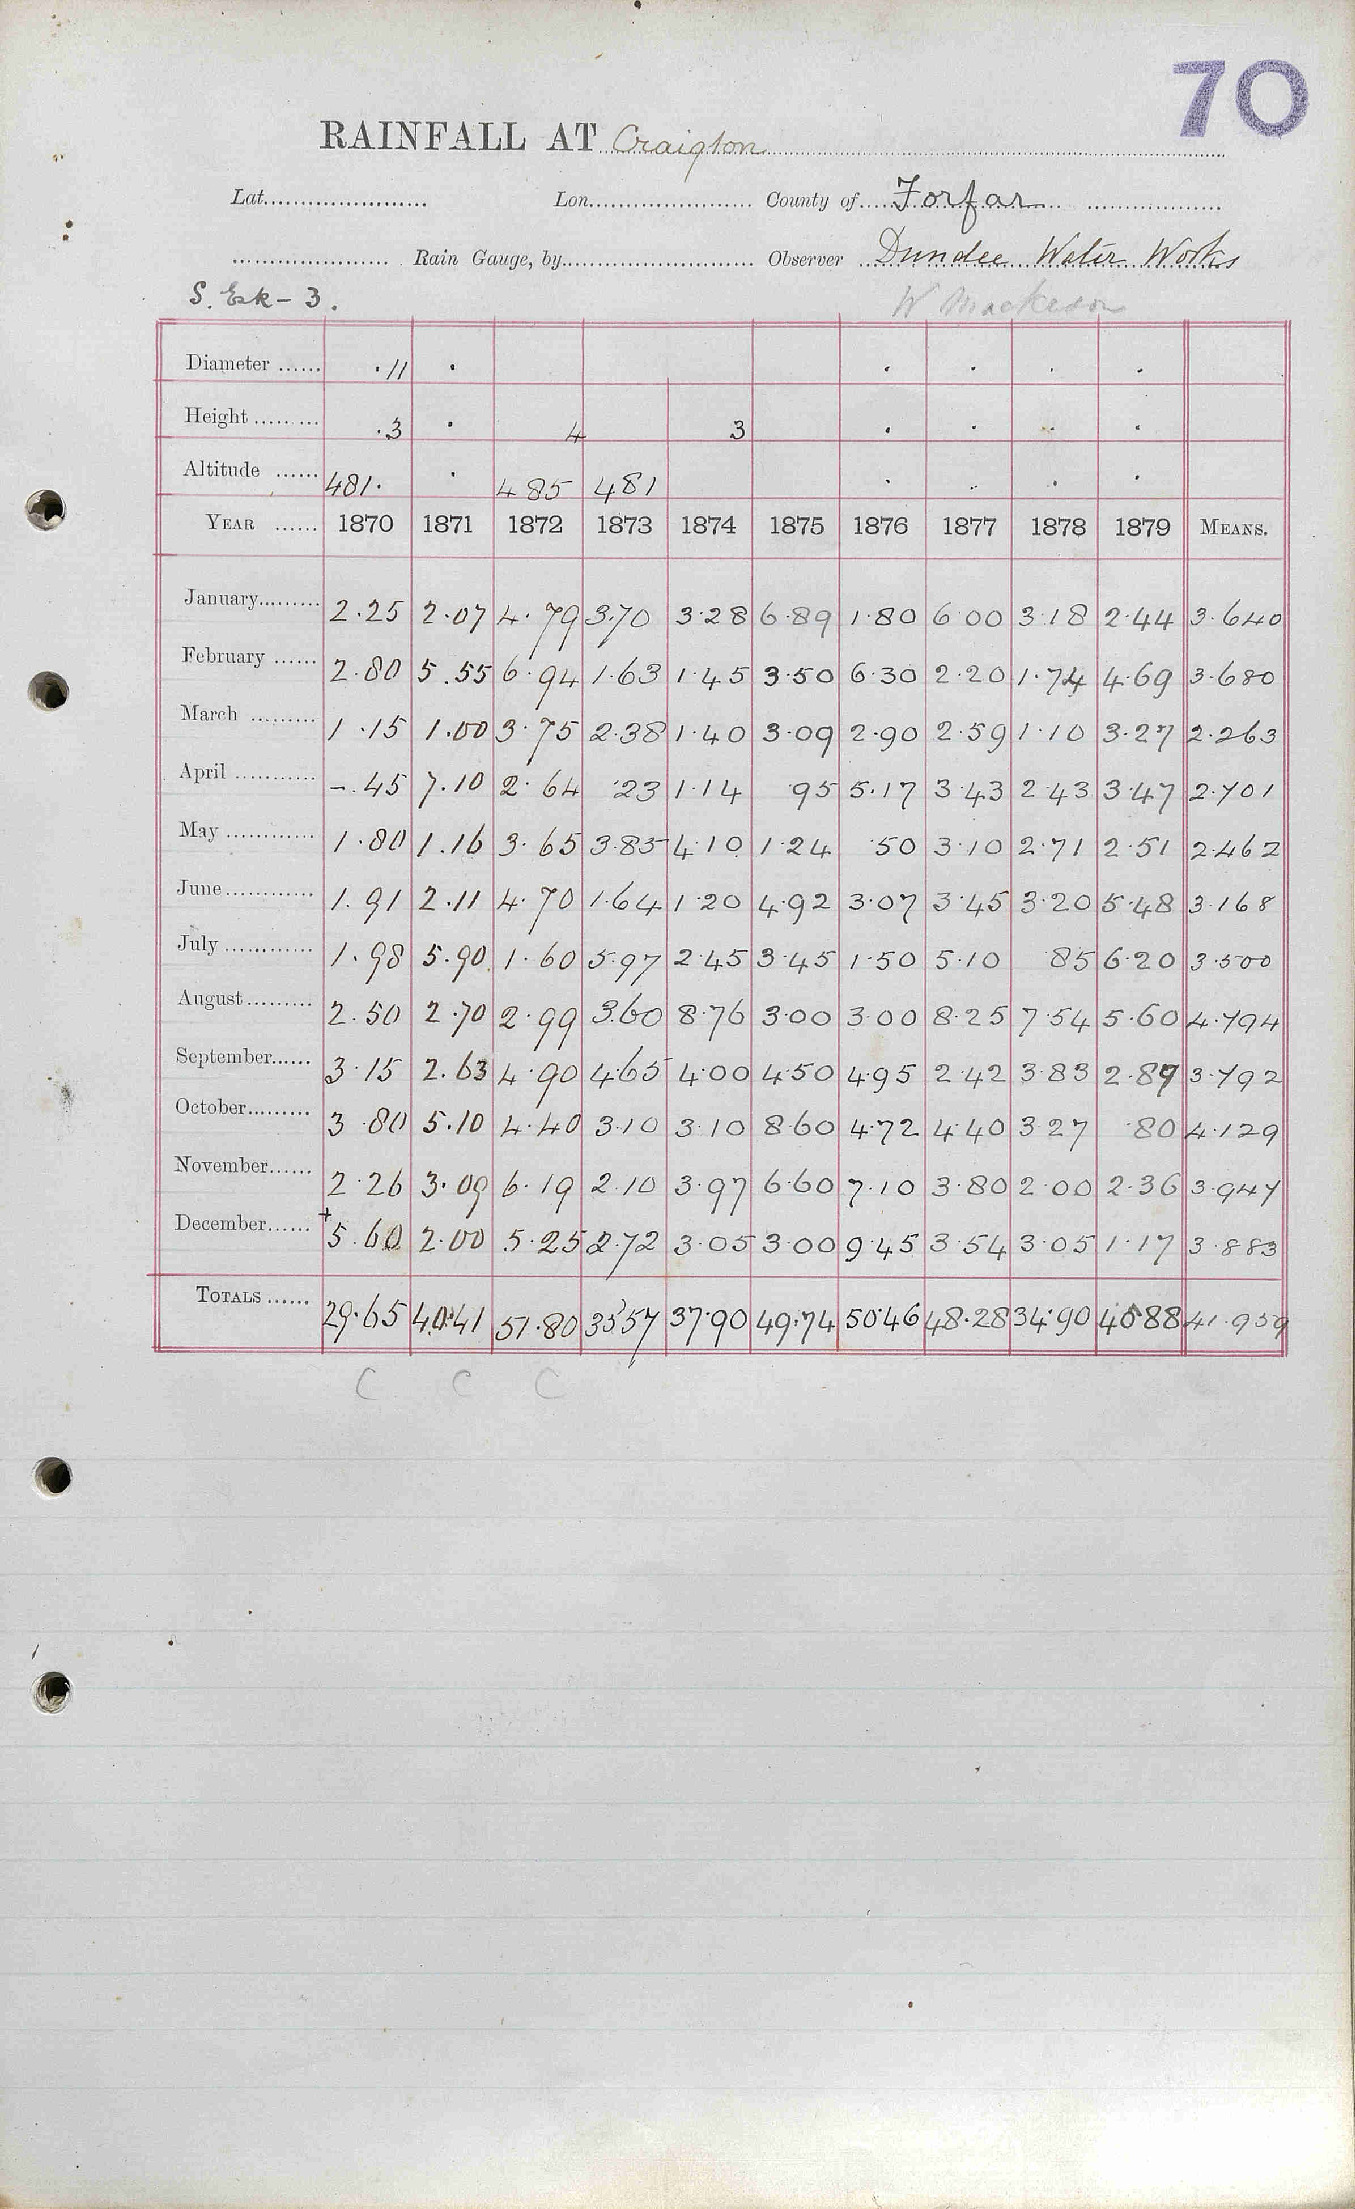 70
RAINFALL AT Craigton
Lat. Lon. County of Forfar
Rain Gauge, by Observer Dundee Water Works
S. Esk - 3. W
Diameter ...... .11 .
Height ......... .3 . 4 3
Altitude ...... 481. . 485 481
YEAR ...... 1870 1871 1872 1873 1874 1875 1876 1877 1878 1879 MEANS.
January......... 2.25 2.07 4.79 3.70 3.28 6.89 1.80 6.00 3.18 2.44 3.640
February ...... 2.80 5.55 6.94 1.63 1.45 3.50 6.30 2.20 1.74 4.69 3.680
March ......... 1.15 1.00 3.75 2.38 1.40 3.09 2.90 2.59 1.10 3.27 2.263
April ............ -.45 7.10 2.64 .23 1.14 95 5.17 3.43 2.43 3.47 2.701
May ............ 1.80 1.16 3.65 3.85 4.10 1.24 .50 3.10 2.71 2.51 2.462
June............ 1.91 2.11 4.70 1.64 1.20 4.92 3.07 3.45 3.20 5.48 3.168
July ............ 1.98 5.90 1.60 5.97 2.45 3.45 1.50 5.10 .85 6.20 3.500
August......... 2.50 2.70 2.99 3.60 8.76 3.00 3.00 8.25 7.54 5.60 4.794
September...... 3.15 2.63 4.90 4.65 4.00 4.50 4.95 2.42 3.83 2.89 3.792
October......... 3.80 5.10 4.40 3.10 3.10 8.60 4.72 4.40 3.27 .80 4.129
November...... 2.26 3.09 6.19 2.10 3.97 6.60 7.10 3.80 2.00 2.36 3.947
December...... +5.60 2.00 5.25 2.72 3.05 3.00 9.45 3.54 3.05 1.17 3.883
TOTALS ...... 29.65 40.41 51.80 35.57 37.90 49.74 50.46 48.28 34.90 40.88 41.959
C C C